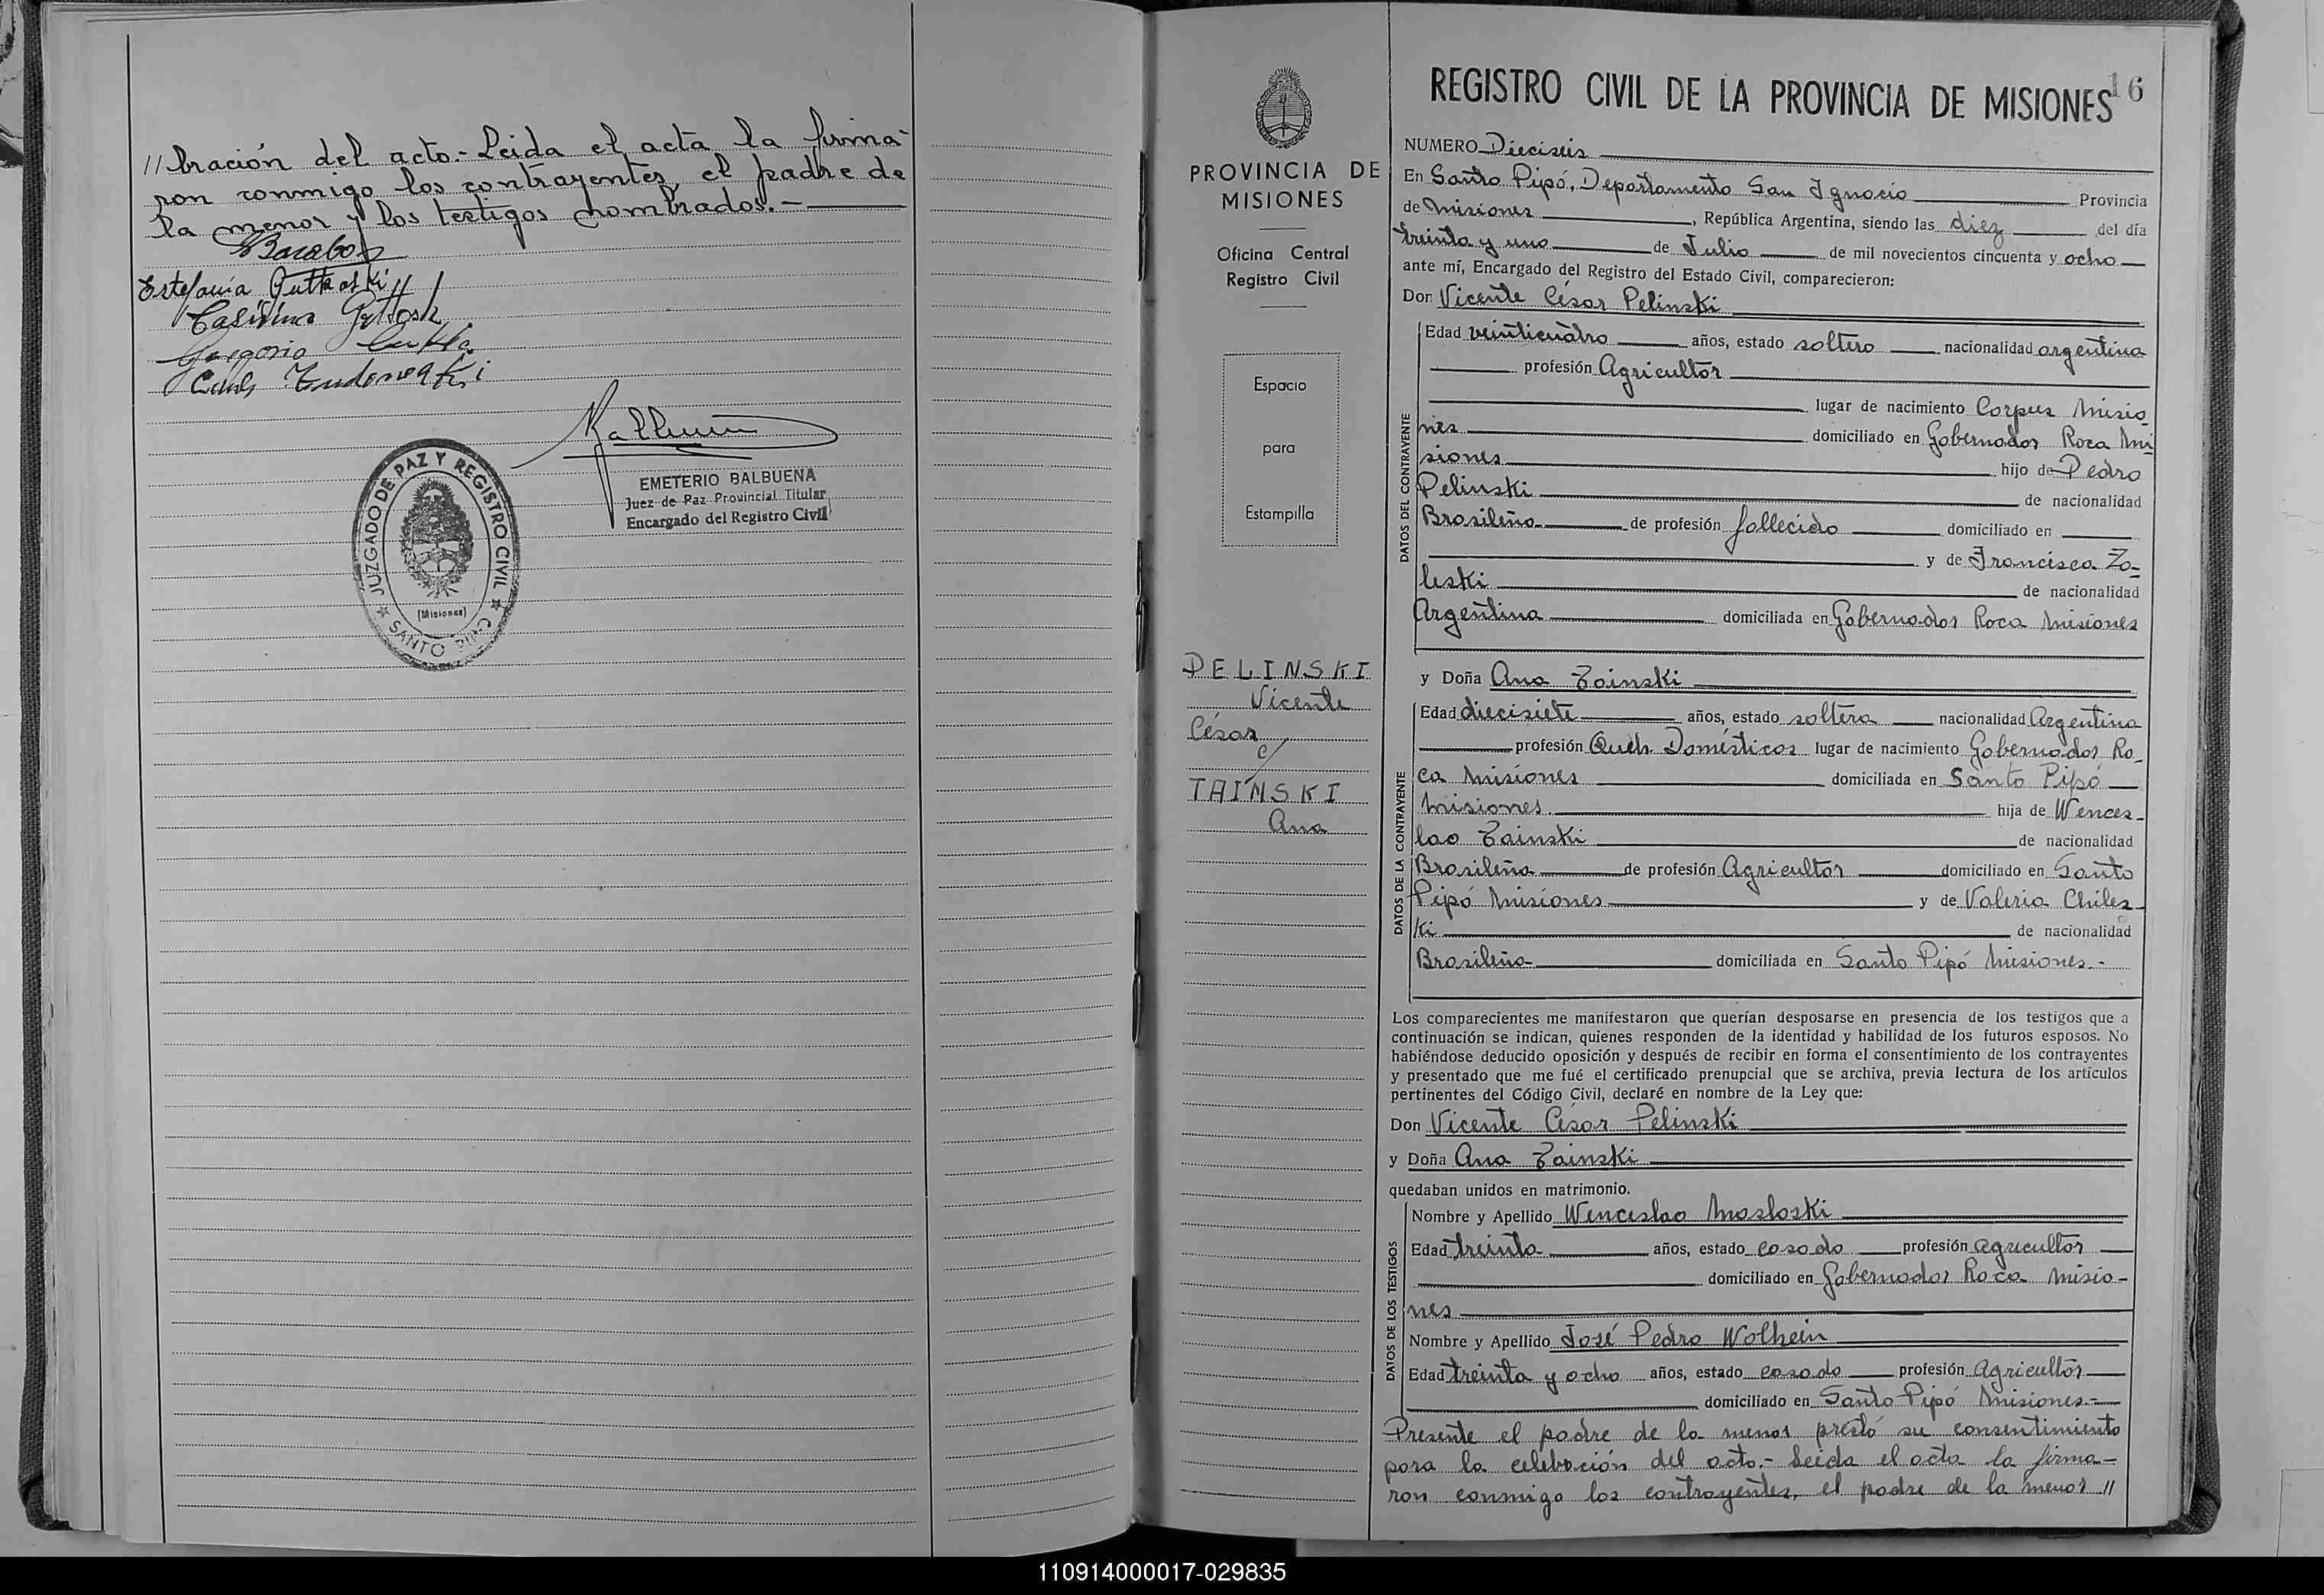 //bración del acto.- Leida el acta la firma-
ron conmigo los contrayentes, el padre de
la menor y los testigos nombrados.-
Estefania
Gregorio
EMETERIO BALBUENA
Juez de Paz Provincial Titular
Encargado del Registro Civil
JUZGADO DE PAZ Y REGISTRO CIVIL
(Misiones)
SANTO PIPO
PROVINCIA DE
MISIONES
Oficina Central
Registro Civil
Espacio
para
Estampilla
PELINSKI
Vicente
César
c/
TAINSKI
Ana
16
REGISTRO CIVIL DE LA PROVINCIA DE MISIONES
NUMERO Dieciseis
En Santo Pipó, Departamento San Ignacio Provincia
de Misiones, República Argentina, siendo las diez del día
treinta y uno de Julio de mil novecientos cincuenta y ocho
ante mí, Encargado del Registro del Estado Civil, comparecieron:
Don Vicente César Pelinski
DATOS DEL CONTRAYENTE
Edad veinticuatro años, estado soltero nacionalidad argentina
profesión Agricultor
lugar de nacimiento Corpus Misio-
nes domiciliado en Gobernador Roca Mi-
siones hijo de Pedro
Pelinski de nacionalidad
Brasileña de profesión fallecido domiciliado en
y de Francisca Za-
leski de nacionalidad
Argentina domiciliada en Gobernador Roca Misiones
y Doña Ana Tainski
DATOS DE LA CONTRAYENTE
Edad diecisiete años, estado soltera nacionalidad Argentina
profesión Queh. Domésticos lugar de nacimiento Gobernador Ro-
ca Misiones domiciliada en Santo Pipó
Misiones hija de Wences-
lao Tainski de nacionalidad
Brasileña de profesión Agricultor domiciliado en Santo
Pipó Misiones y de Valeria Chiles-
ki de nacionalidad
Brasileña domiciliada en Santo Pipó Misiones.-
Los comparecientes me manifestaron que querían desposarse en presencia de los testigos que a
continuación se indican, quienes responden de la identidad y habilidad de los futuros esposos. No
habiéndose deducido oposición y después de recibir en forma el consentimiento de los contrayentes
y presentado que me fué el certificado prenupcial que se archiva, previa lectura de los artículos
pertinentes del Código Civil, declaré en nombre de la Ley que:
Don Vicente César Pelinski
y Doña Ana Tainski
quedaban unidos en matrimonio.
DATOS DE LOS TESTIGOS
Nombre y Apellido Wenceslao Masloski
Edad treinta años, estado casado profesión agricultor
domiciliado en Gobernador Roca Misio-
nes
Nombre y Apellido José Pedro Wolhein
Edad treinta y ocho años, estado casado profesión Agricultor
domiciliado en Santo Pipó Misiones.-
Presente el padre de la menor prestó su consentimiento
para la celebración del acto.- Leida el acta la firma-
ron conmigo los contrayentes, el padre de la menor //
110914000017-029835